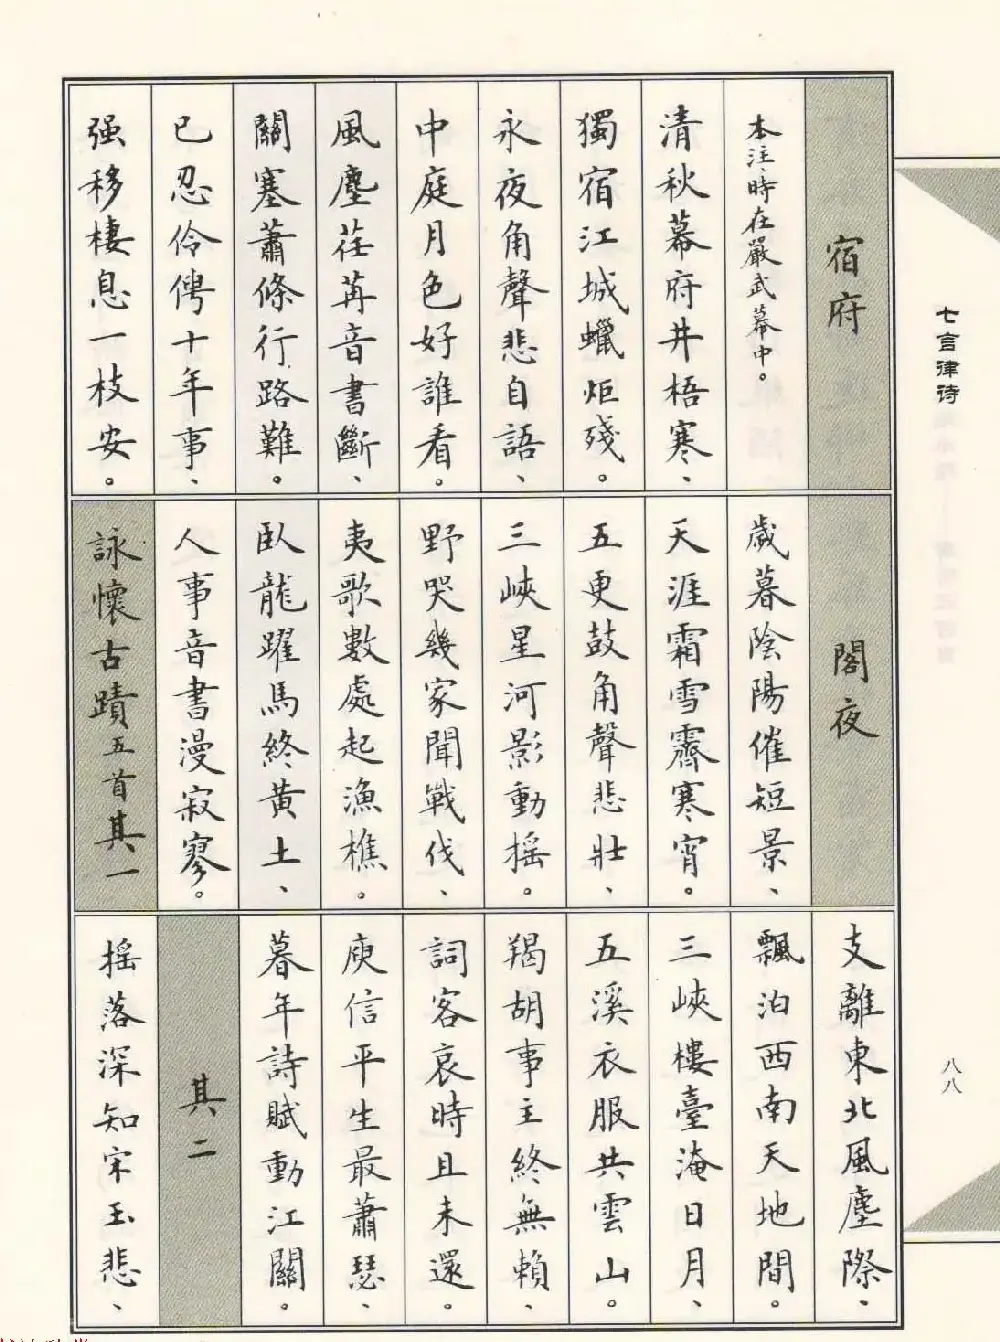 七言律诗
八八
宿府
本注、時在嚴武幕中。
清秋幕府井梧寒、
獨宿江城蠟炬殘。
永夜角聲悲自語、
中庭月色好誰看。
風塵荏苒音書斷、
關塞蕭條行路難。
已忍伶俜十年事、
强移棲息一枝安。
閣夜
歲暮陰陽催短景、
天涯霜雪霽寒宵。
五更鼓角聲悲壯、
三峽星河影動搖。
野哭幾家聞戰伐、
夷歌數處起漁樵。
臥龍躍馬終黃土、
人事音書漫寂寥。
詠懷古蹟五首其一
支離東北風塵際、
飄泊西南天地間。
三峽樓臺淹日月、
五溪衣服共雲山。
羯胡事主終無賴、
詞客哀時且未還。
庾信平生最蕭瑟、
暮年詩賦動江關。
其二
搖落深知宋玉悲、